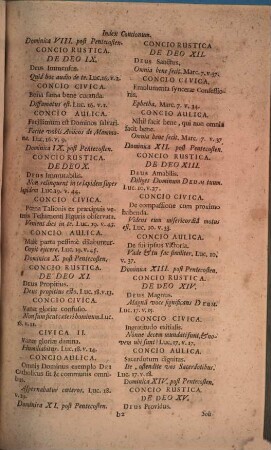 Index Concionum.
Dominica VIII. post Pentecosten.
CONCIO RUSTICA.
DE DEO IX.
Deus Immensus.
Quid hoc audio de te. Luc. 16. v. 2.
CONCIO CIVICA.
Bona fama bene curanda.
Diffamatus est. Luc. 16. v. 1.
CONCIO AULICA.
Facillimum est Dominos
Facite vobis Amicos de Mammona
Luc. 16. v. 9.
Dominica IX. post Pentecosten.
CONCIO RUSTICA.
DE DEO X.
Deus Immutabilis.
Non relinquent in te lapidem super
lapidem Luc. 19. v. 44.
CONCIO CIVICA.
Poena Talionis ex praecipuis veteris
Testamenti figuris observata.
Venient dies in te. Luc. 19. v. 43.
CONCIO AULICA.
Male parta pessime dilabuntur.
Cepit ejicere. Luc. 19. v. 45.
Dominica X. post Pentecosten.
CONCIO RUSTICA.
DE DEO XI.
Deus Propitius.
Deus propitius esto. Luc. 18. v. 13.
CONCIO CIVICA.
Variae gloriae confusio.
Non sum sicut caeteri hominum. Luc.
18. v. 11.
CIVICA II.
Vanae gloriae damna.
Humiliabitur. Luc. 18. v. 14.
CONCIO AULICA.
Omnis Dominus exemplo DEI
Catholicus sit & communis omnibus.
Aspernabatur caeteros. Luc. 18.
v. 9.
Dominica XI. post Pentecosten.
CONCIO RUSTICA
DE DEO XII.
Deus Sanctus.
Omnia bene fecit. Marc. 7. v. 37.
CONCIO CIVICA.
synonomae Confessio
Ephetha. Marc. 7. v. 34.
CONCIO AULICA.
Nihil facit bene, qui non omnia
facit bene.
Omnia bene fecit. Marc. 7. v. 37
Dominica XII. post Pentecosten.
CONCIO RUSTICA.
DE DEO XIII.
Deus Amabilis.
Diliges Dominum DEUM tuum.
Luc. 10. v. 27.
CONCIO CIVICA.
De compassione cum proximo
habenda.
Videns eum misericordia motus
est. Luc. 10. v. 33.
CONCIO AULICA.
De sui ipsius Victoria.
Vade & tu fac similiter. Luc. 10.
v. 37.
Dominica XIII. post Pentecosten.
CONCIO RUSTICA.
DE DEO XIV.
Deus Magnus.
Magna voce magnificans DEUM.
Luc. 17. v. 15.
CONCIO CIVICA.
Ingratitudo exitialis.
Nonne decem mundati sunt, & novem
ubi sunt? Luc. 17. v. 17.
CONCIO AULICA.
Sacerdotum dignitas.
Ite, ostendite vos Sacerdotibus.
Luc. 17. v. 14.
Dominica XIV. post Pentecosten.
CONCIO RUSTICA.
DE DEO XV.
Deus Providus.
b2